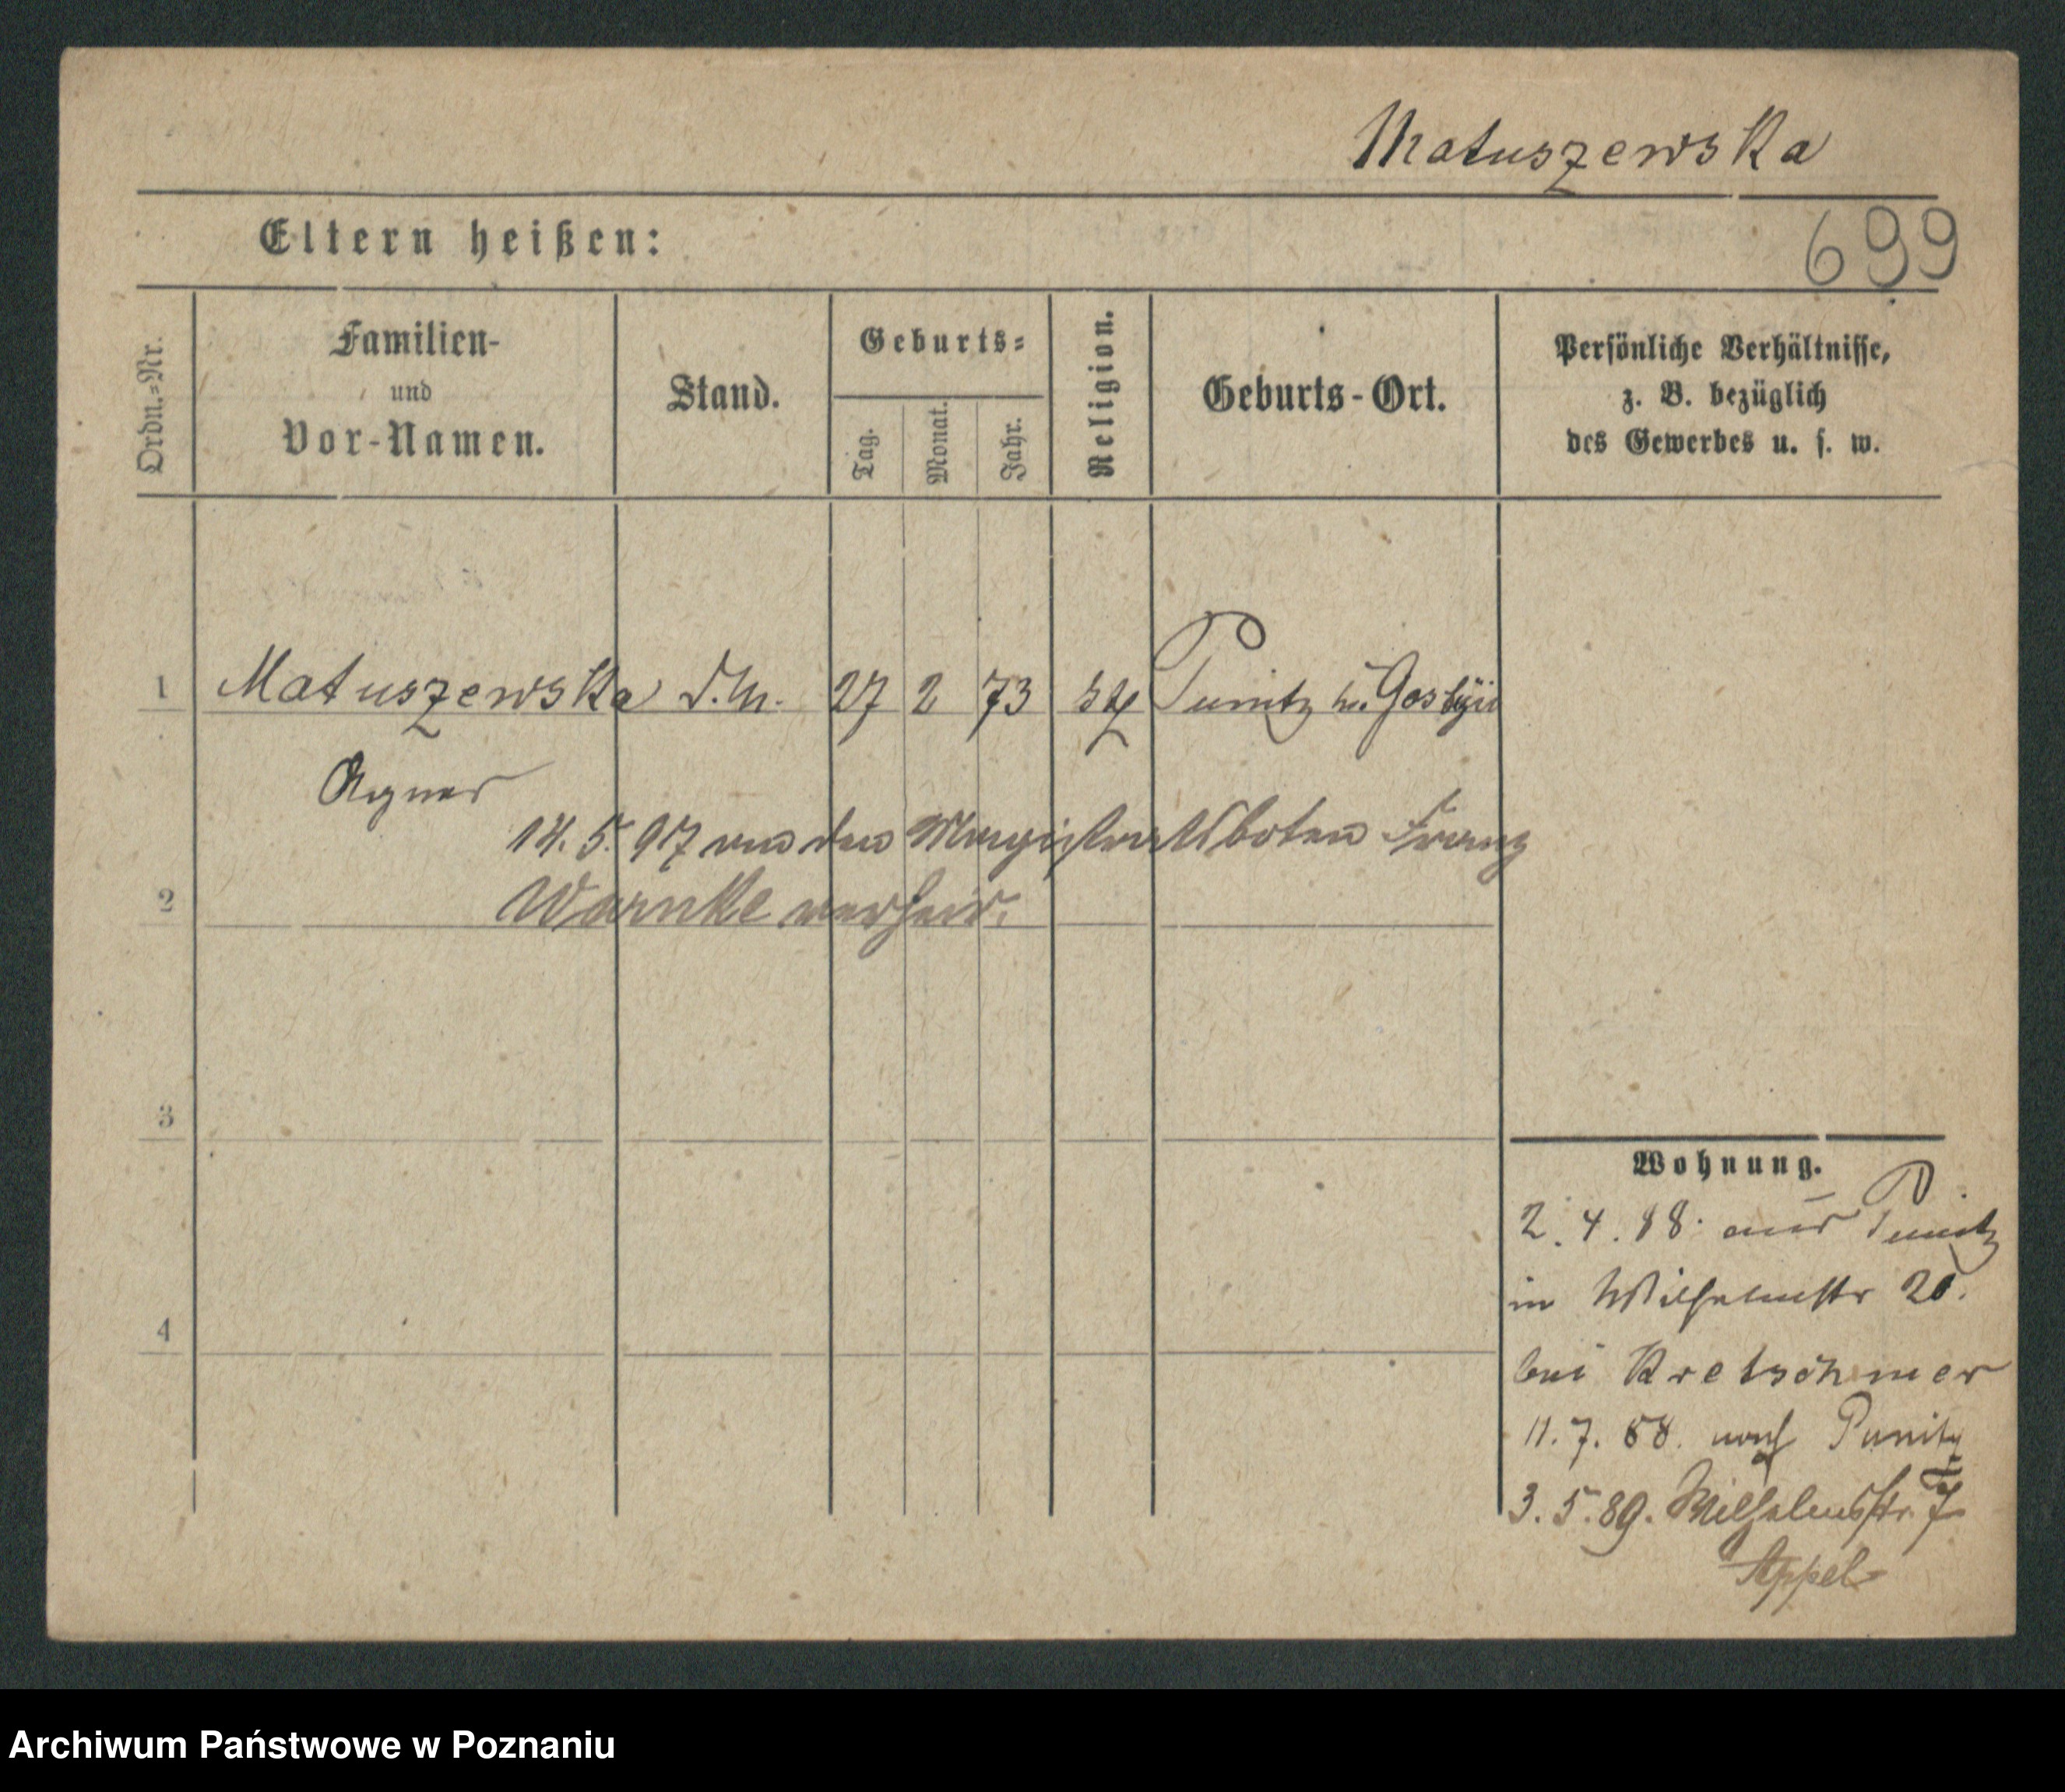 Matuszewska
699
Eltern heißen:
Ordn.-Nr.
Familien-
und
Vor-Namen.
Stand.
Geburts-
Tag.
Monat.
Jahr.
Religion.
Geburts-Ort.
Persönliche Verhältnisse,
z. B. bezüglich
des Gewerbes u. s. w.
1 Matuszewska D.M. 27 2 73 Punitz Kr. Gostyn
Agnes
14. 5. 97 den Magistratsboten Franz
2 Warnke verheir.
3
4
Wohnung.
2. 4. 88. aus Punitz
in Wilhelmstr 20.
bei Kretschmer
11. 7. 88. nach Punitz
3. 5. 89. Wilhelmstr. 7
Appel
Archiwum Państwowe w Poznaniu